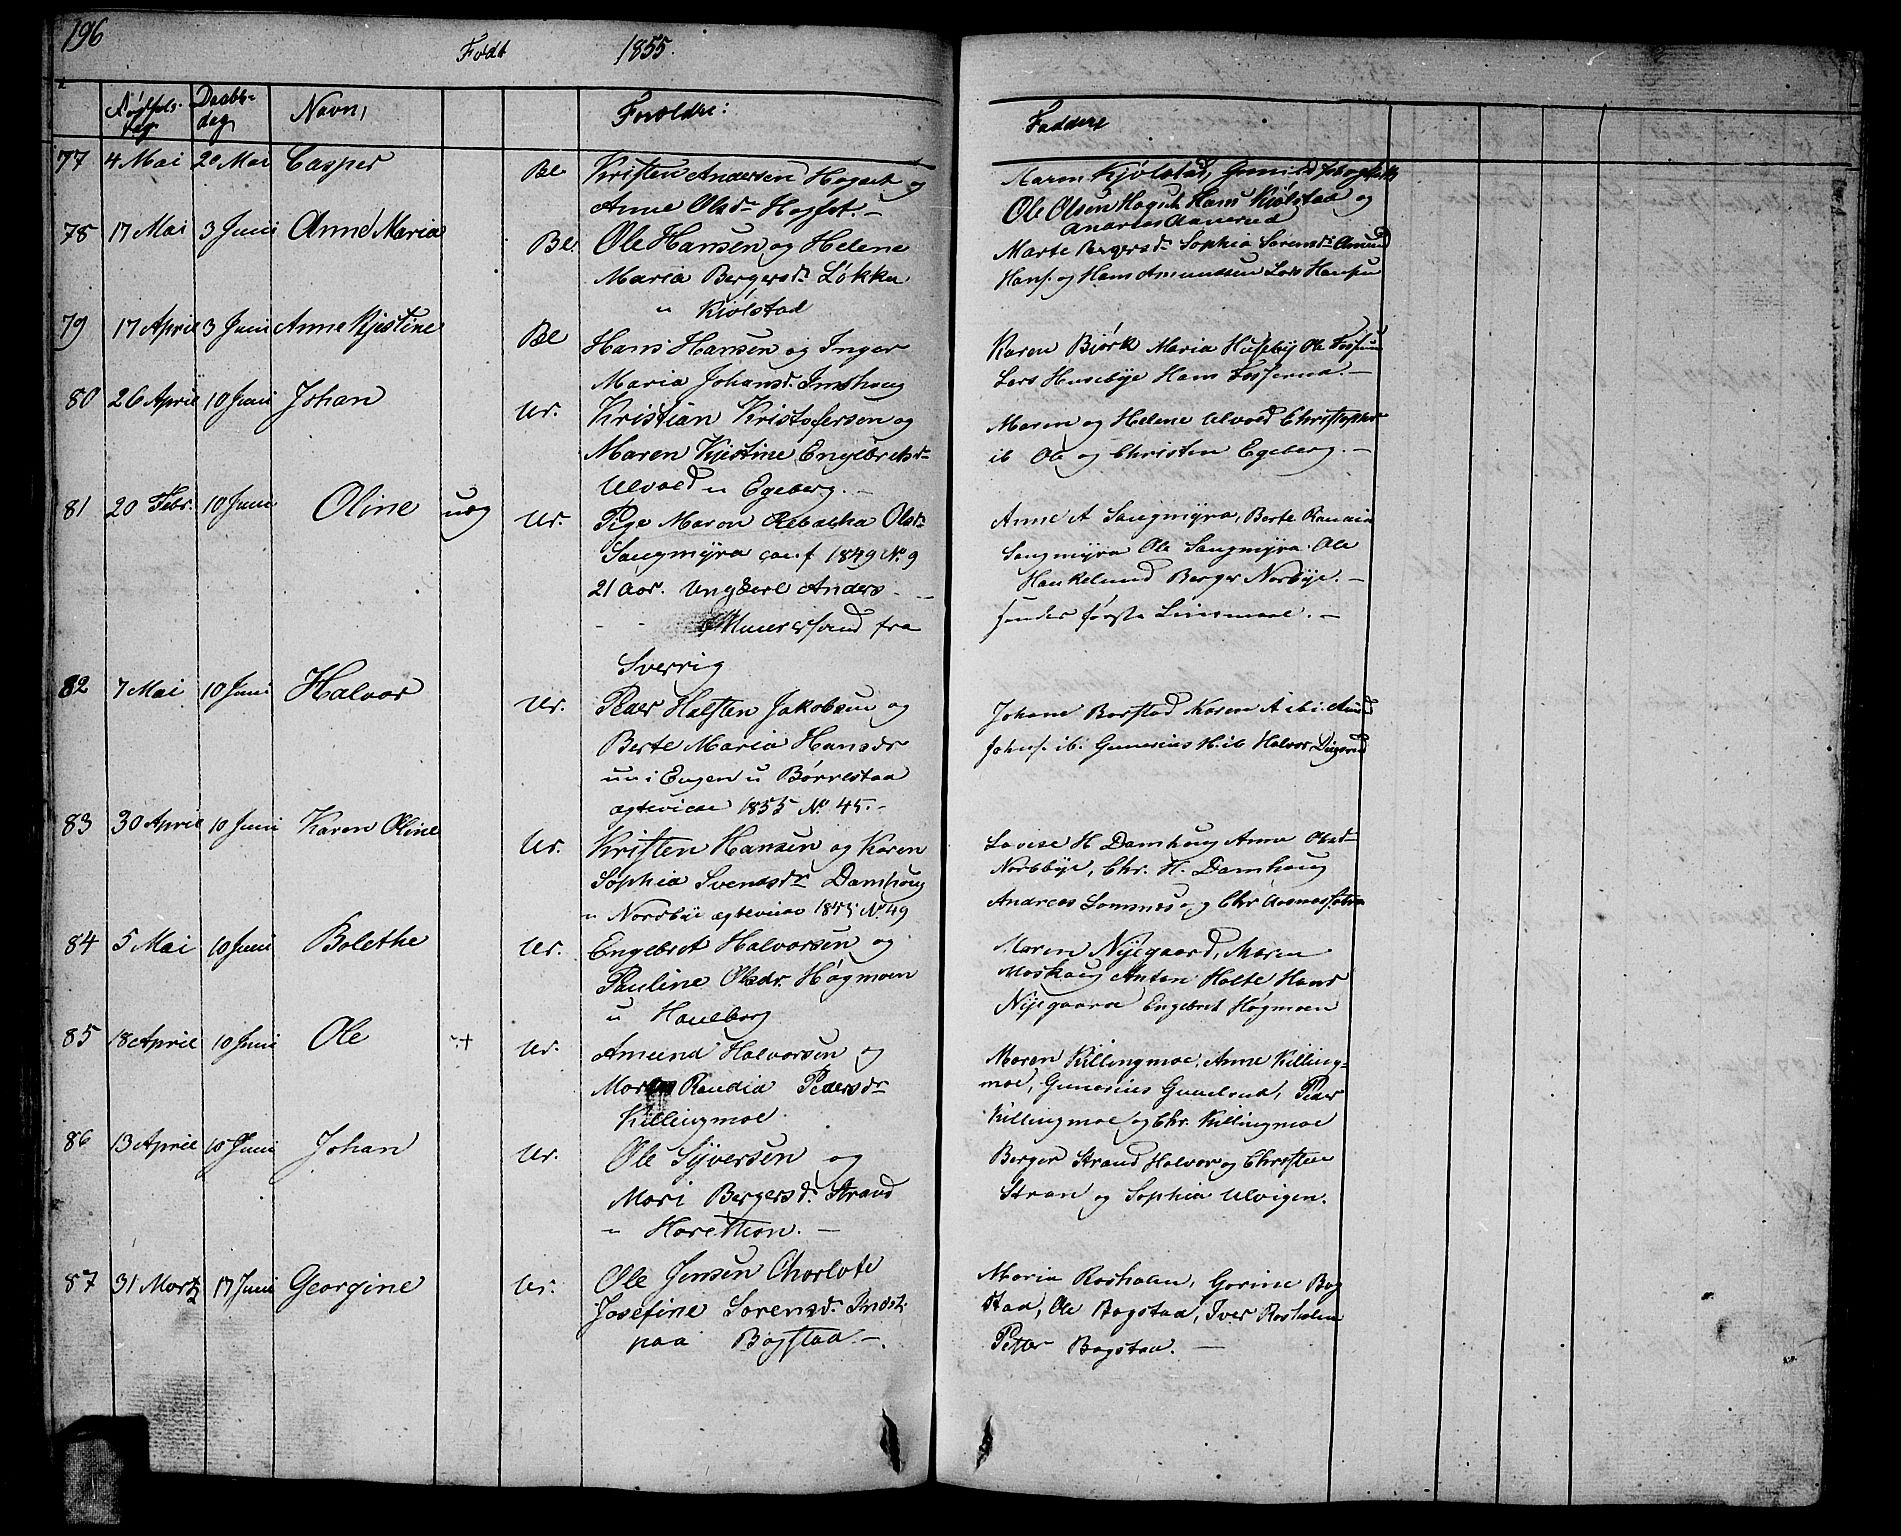 196
Født 1855.
Fødsels- dag Daabs- dag Navn, Forældre: Faddere
77 4 Mai 20 Mai Casper Bl Kristen Andersen Hogset og
Anne Olsd. Hogset. –
Maren Kjølstad, Gunild
Ole Olsen Hogset Hans Kjølstad og
Andreas Aanerud
78 17 Mai 3 Juni Anne Maria Bl Ole Hansen og Helene
Maria Bergersdr Løkka
u Kjølstad
Marte Bergersdr Sophia Sørensdr Amund
Hans. og Hans Amundsen Lars Hansen
79 17 April 3 Juni Anne Kjestine Bl Hans Hansen og Inger
Maria Johansd. Imshoug
Karen Bjørk Maria Huseby Ole
Lars Husebye Hans Fosserud. –
80 26 April 10 Juni Johan Ur. Kristian Kristofersen og
Maren Kjestine Engebretsdr
Ulvold u Egeberg. –
Maren og Helene Ulvold Christopher
ib Ole og Christen Egeberg. –
81 20 Febr. 10 Juni Oline uæg Ur. Pige Maren Rebækka Olsdr
Saugmyra conf 1849 No. 9
21 Aar. Ungkarl Anders
fra
Sverrig
Anne A Saugmyra, Berte Randia
Saugmyra Ole Saugmyra Ole
Haukelund Berger Norbye. –
hendes første Leiermaal. –
82 7 Mai 10 Juni Halvor Ur. Peder Halften Jakobsen og
Berte Maria Hansdr
Engen u Børrestad
ægteviede 1855 No 45. –
Johane Borstad Karen A ib. Amund
Johns. ib. Gunerius H. ib Halvor
83 30 April 10 Juni Karen Oline Ur. Kristen Hansen og Karen
Sophia Svendsdr Damhoug
u Nordbye ægteviede 1855 No. 49
Lovise H Damhoug Anne Olsdr
Nordbye, Chr. H. Damhoug
Andreas Lomnes og Chr Aasnessætra
84 5 Mai 10 Juni Bolethe Ur. Engebret Halvorsen og
Pauline Olsdr. Høgmoen
u Houlborg
Maren Nyegaard, Maren
Moshoug Anton Holte Hans
Nyegaard Engebret Høgmoen
85 18 April 10 Juni Ole + Ur. Amund Halvorsen og
Maren Randia Pedersdr
Killingmoe.
Maren Killingmoe, Anne Killing-
moe, Gunerius Gundsrud, Peder
Killingmoe og Chr. Killingmoe
86 13 April 10 Juni Johan Ur. Ole Syversen og
Mari Bergersd. Strand
u Horethon. –
Berger Strand Halvor og Christen
Stran og Sophia Ulvigen.
87 31 Martz 17 Juni Georgine Ur. Ole Jensen Charlote
Josefine Sørensd. Indst.
paa Bogstad. –
Maria Rosholm, Gorine Bog
stad, Ole Bogstad, Iver Rosholm
Petter Bogstad. –